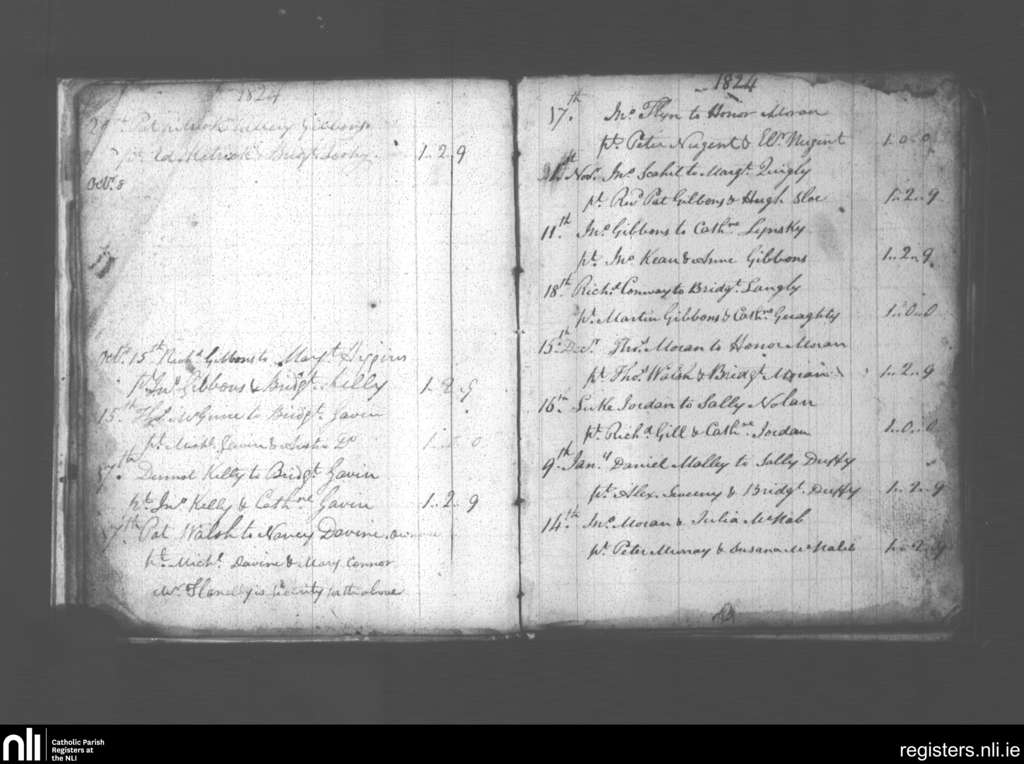 1824
29th Pat
pt. Ed. & Bridgt. 1..2..9
Octr. 8
17
Octr. 15th Richd. Gibbons to Margt. Higgins
pt. Jno. Gibbons & Bridgt. 1..2..9
15th Thos. McGuire to Bridgt. Gavin
pt. Michl. Gavin & Do
17th Dermot Kelly to Bridgt. Gavin
pt. Jno. Kelly & Cathne. Gavin 1..2..9
17th Pat Walsh to Nancy Davine
pt. Michl. Davine & Mary Connor
Mr. is Security for the above
1824
17th. Jno. Flyn to Honor Moran
pt. Peter Nugent & Elr. Nugent 1..0..0
Novr. Jno. Scahil to Margt. Quigly
pt. Revd. Pat Gibbons & Hugh Sloe 1..2..9
11th. Jno. Gibbons to Cathne. Lynsky
pt. Jno. Kean & Anne Gibbons 1..2..9
18th. Richd. Conway to Bridgt. Langly
pt. Martin Gibbons & Cathne. Geraghty 1..0..0
15th. Decr. Thos. Moran to Honor Moran
pt. Thos. Walsh & Bridgt. Moran 1..2..9
16th. Luke Jordan to Sally Nolan
pt. Richd. Gill & Cathne. Jordan 1..0..0
9th. Jany. Daniel Malley to Sally Duffy
pt. Alex. Sweeny & Bridgt. Duffy 1..2..9
14th. Jno. Moran & Julia McNab
pt. Peter Murray & Susana 1..2..9
nli
Catholic Parish
Registers at
the NLI
registers.nli.ie